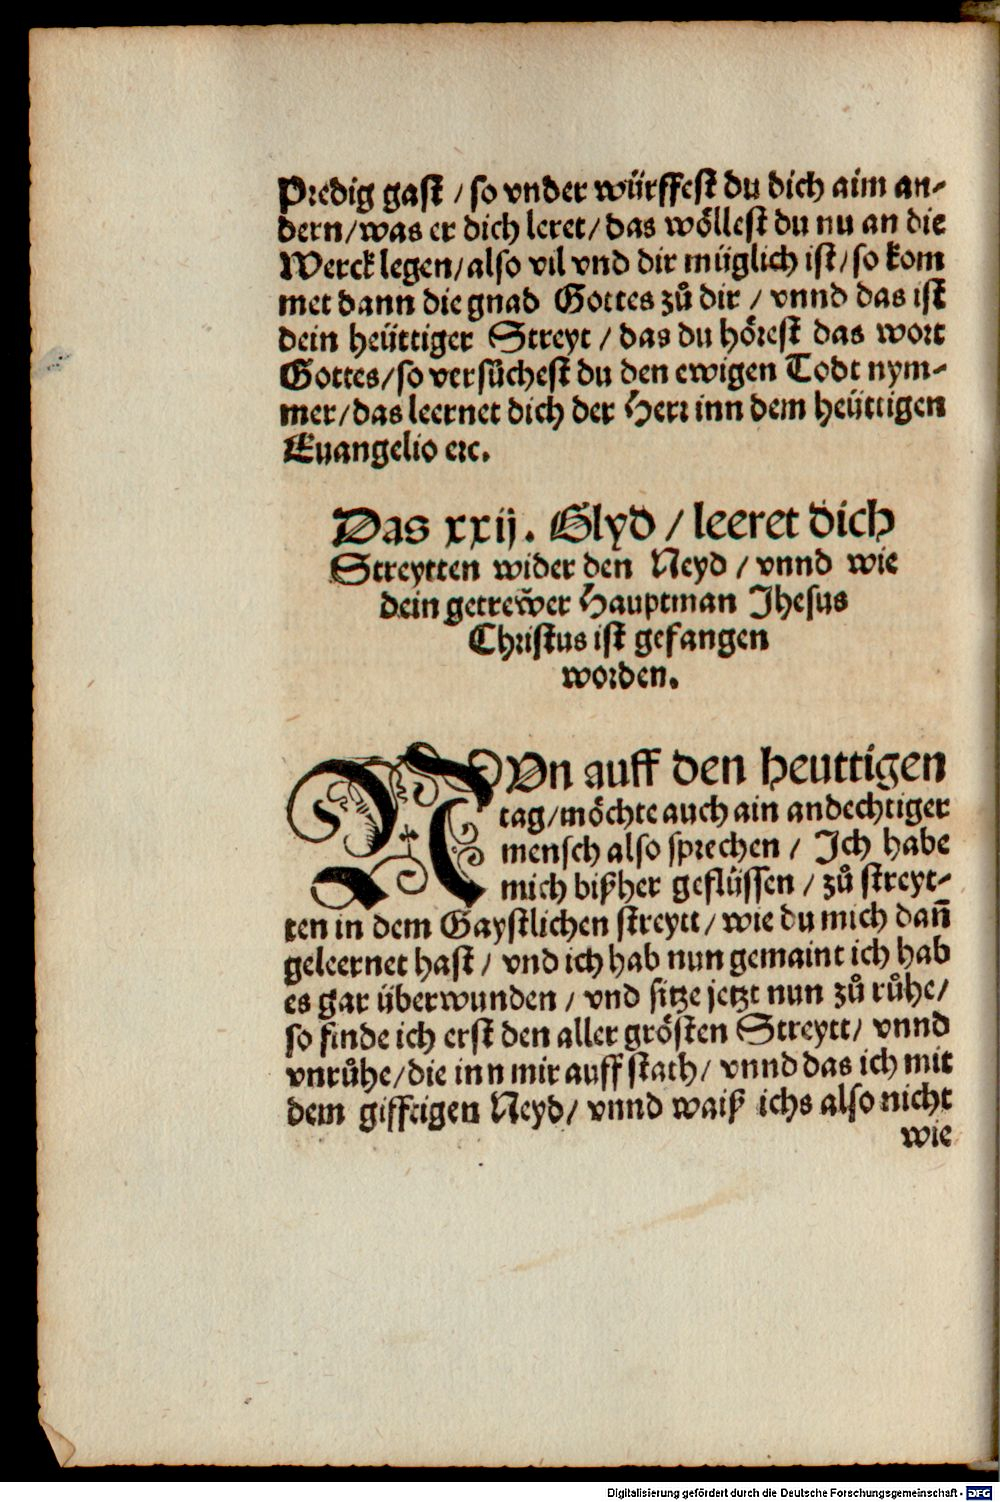 Predig gast / so vnder würffest du dich aim an-
dern/was er dich leret/das wöllest du nu an die
Werck legen/also vil vnd dir müglich ist/so kom
met dann die gnad Gottes zů dir / vnnd das ist
dein heüttiger Streyt / das du hörest das wort
Gottes/so versüchest du den ewigen Todt nym-
mer/das leernet dich der Herr inn dem heüttigen
Euangelio etc.
Das xxij. Glyd / leeret dich
Streytten wider den Neyd / vnnd wie
dein getrew̃er Hauptman Jhesus
Christus ist gefangen
worden.
NVn auff den heuttigen
tag/möchte auch ain andechtiger
mensch also sprechen / Ich habe
mich bißher geflüssen / zů streyt-
ten in dem Gaystlichen streytt/ wie du mich dañ
geleernet hast / vnd ich hab nun gemaint ich hab
es gar überwunden / vnd sitze jetzt nun zů růhe/
so finde ich erst den aller grösten Streytt/ vnnd
vnrůhe/die inn mir auff stath/ vnnd das ich mit
dem gifftigen Neyd/ vnnd waiß ichs also nicht
wie
Digitalisierung gefördert durch die Deutsche Forschungsgemeinschaft - DFG